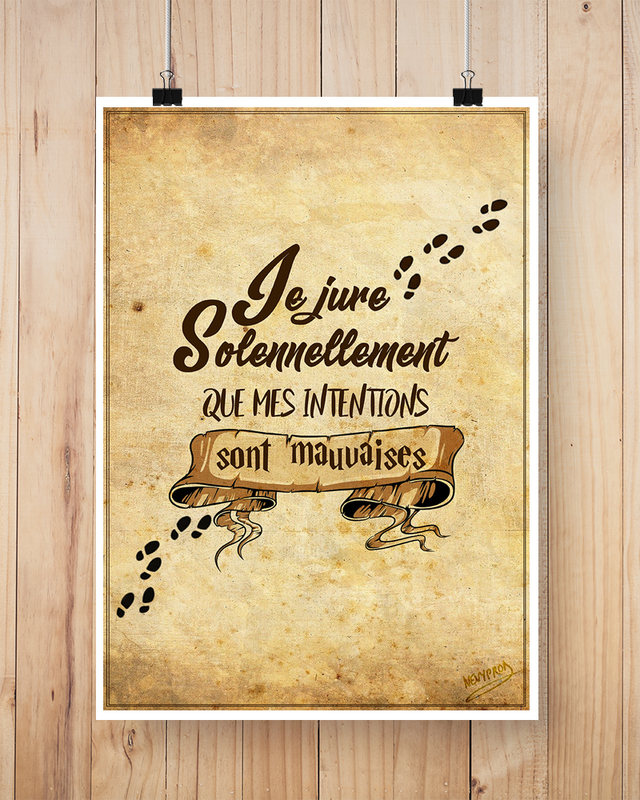 Je jure
Solennellement
QUE MES INTENTIONS
sont mauvaises
NEVYPROD